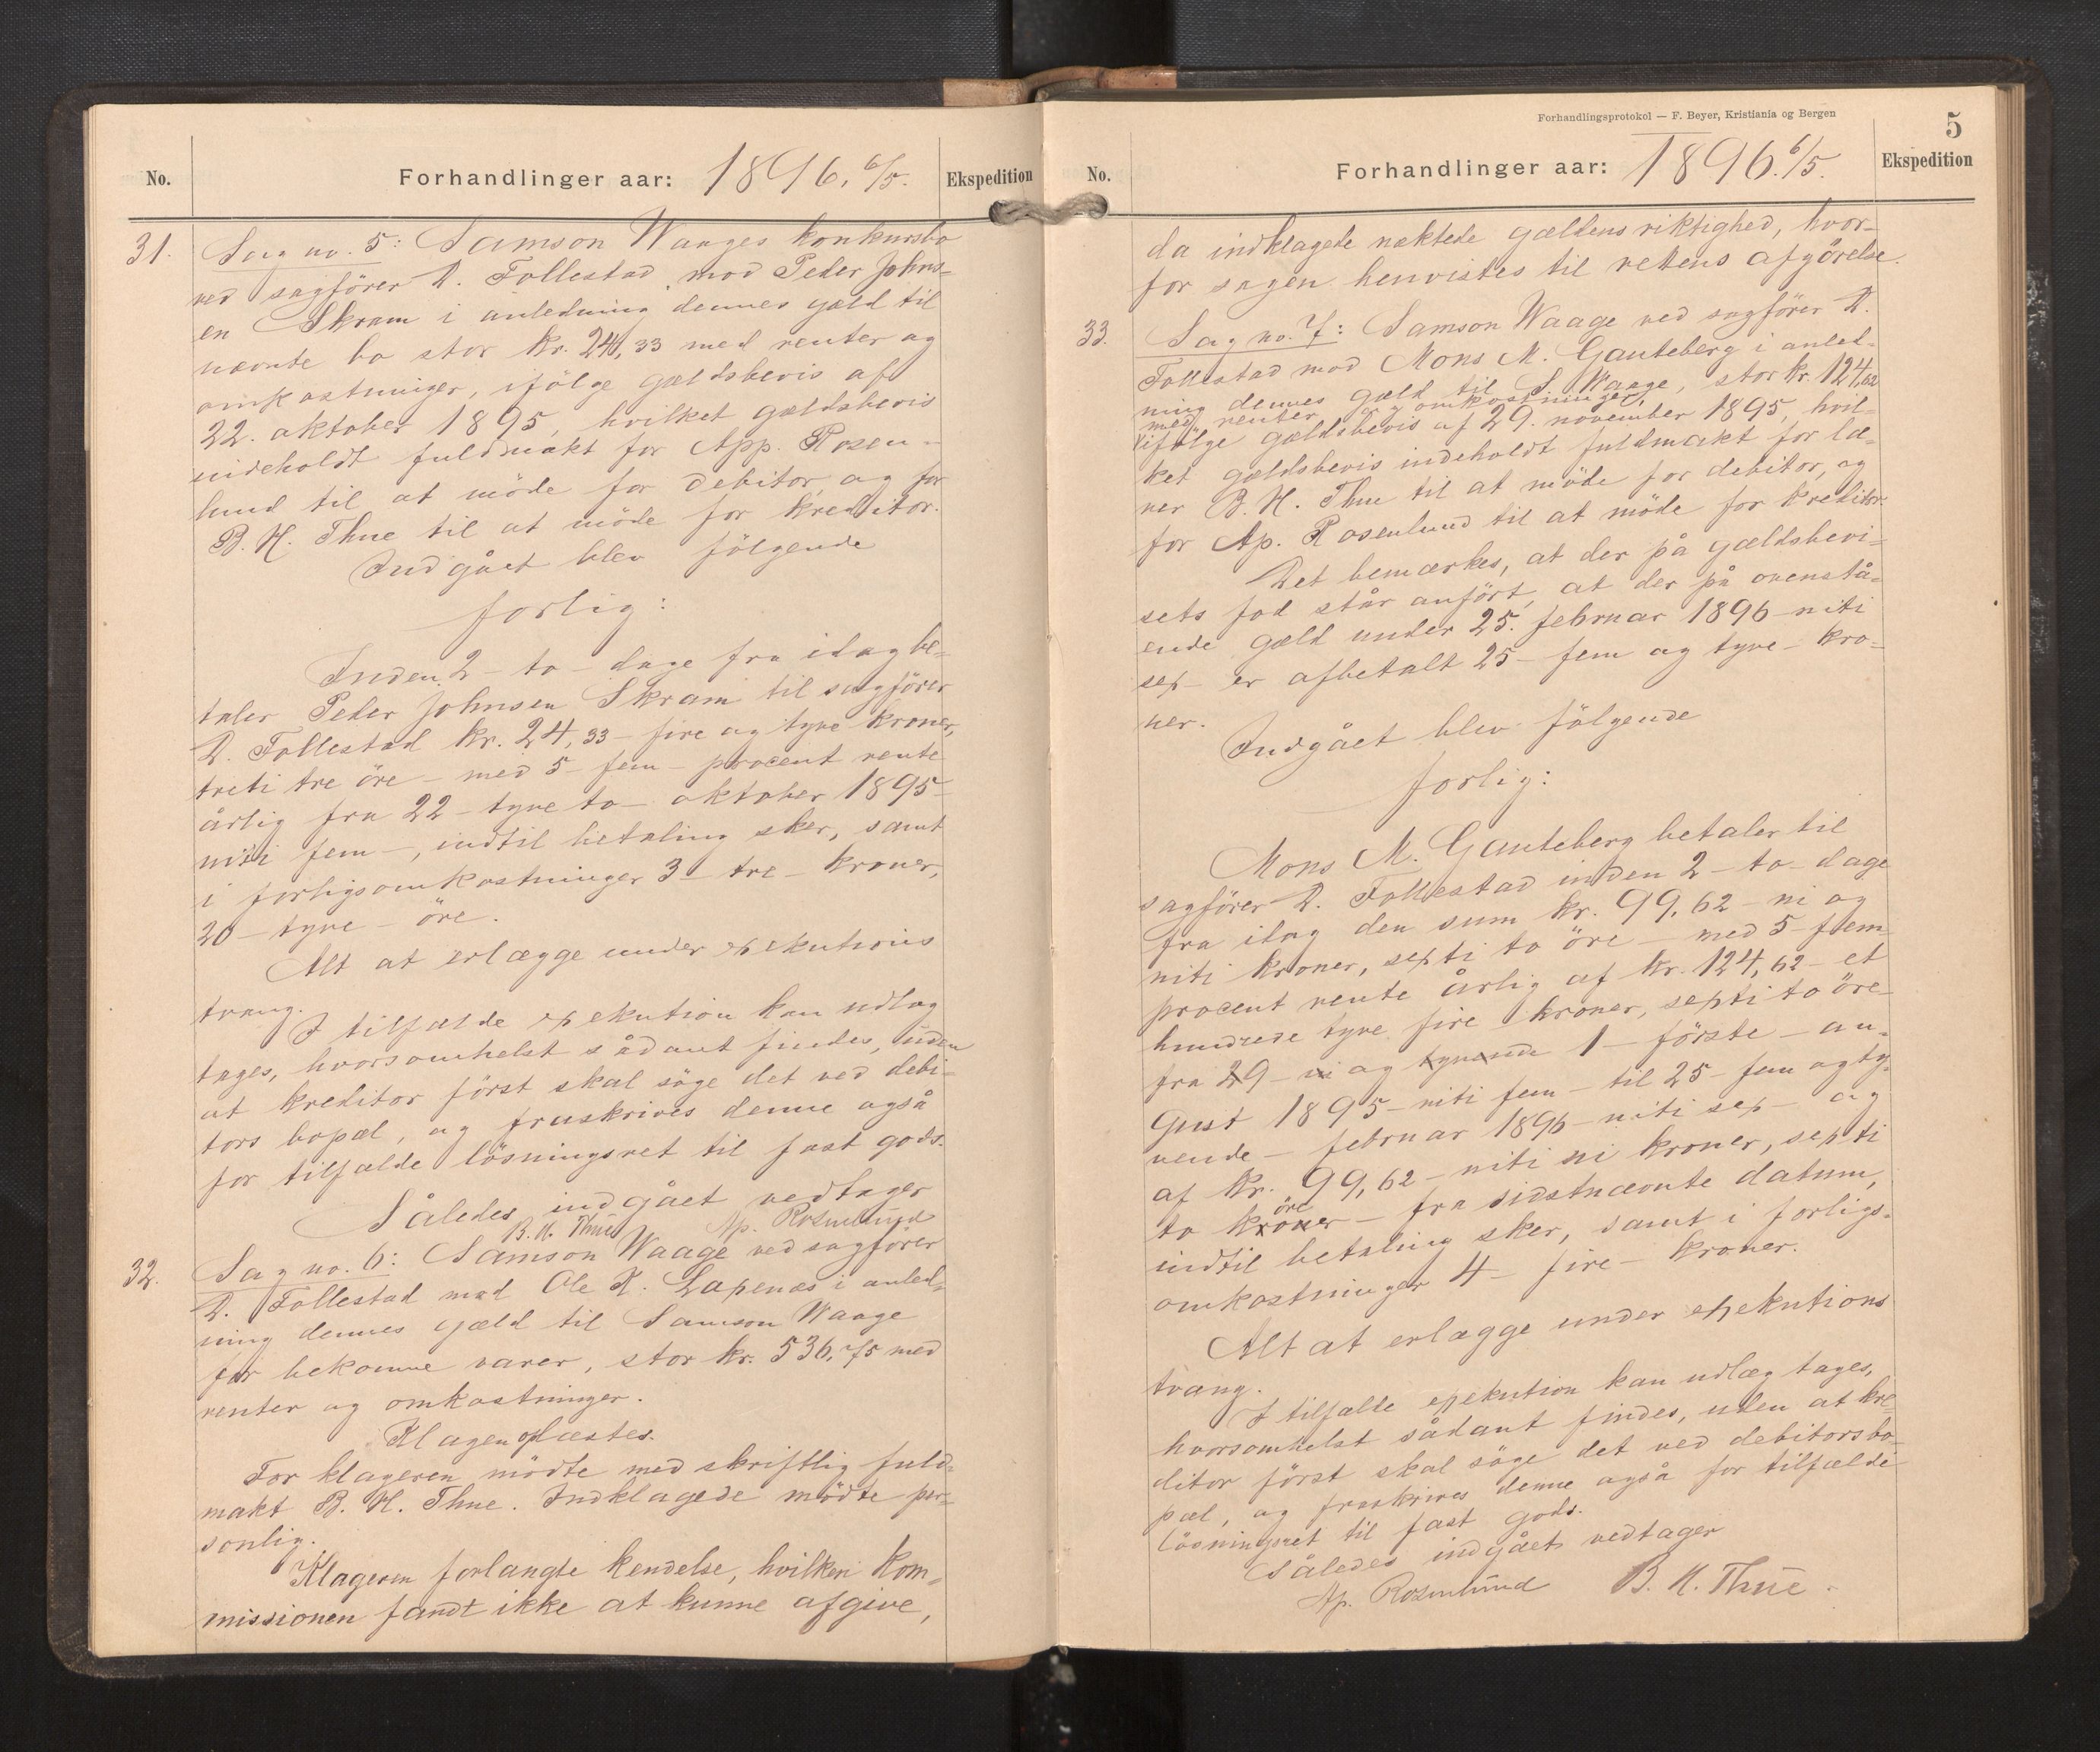 No.
Forhandlinger aar: 1896. 6/5.
Ekspedition
31.
Sag no. 5: Samson Waages konkursbo
ved sagförer D. Follestad mod Peder Johns-
en Skram i anledning dennes gæld til
nævnte bo stor kr. 24,33 med renter og
omkostninger, ifölge gældsbevis af
22. oktober 1895, hvilket gældsbevis
indeholdt fuldmakt for App. Rosen-
lund til at möde for debitor, og for
B. H. Thue til at möde for kreditor.
Indgået blev fölgende
forlig:
Inden 2 - to - dage fra idag be-
taler Peder Johnsen Skram til sagförer
D. Follestad kr. 24,33 - fire og tyve kroner,
treti tre öre - med 5 - fem - procent rente
årlig fra 22 - tyve to - oktober 1895 -
niti fem -, indtil betaling sker, samt
i forligsomkostninger 3 - tre - kroner,
20 - tyve - öre.
Alt at erlægge under exekutions
tvang.
I tilfælde exekution kan udlæg
tages, hvorsomhelst sådant findes, uden
at kreditor först skal söge det ved debi-
tors bopæl, og fraskrives denne også
for tilfælde lösningsret til fast gods.
Således indgået vedtager
B. H. Thue Ap. Rosenlund
32.
Sag no. 6: Samson Waage ved sagförer
D. Follestad mod Ole K. Lapenæs i anled-
ning dennes gæld til Samson Waage
for bekomne varer, stor kr. 536,75 med
renter og omkostninger.
Klagen oplæstes.
For klageren mödte med skriftlig fuld-
makt B. H. Thue. Indklagede mödte per-
sonlig.
Klageren forlangte kendelse, hvilken kom-
missionen fandt ikke at kunne afgive,
Forhandlingsprotokol — F. Beyer, Kristiania og Bergen
5
No.
Forhandlinger aar: 1896. 6/5.
Ekspedition
da indklagede nektede gældens riktighed, hvor-
for sagen henvistes til rettens afgörelse.
33.
Sag no. 7: Samson Waage ved sagförer D.
Follestad mod Mons M. Gauteberg i anled-
ning dennes gæld til S. Waage, stor kr. 124,62
med renter og omkostninger,
ifölge gældsbevis af 29. november 1895, hvil-
ket gældsbevis indeholdt fuldmakt for læ-
rer B. H. Thue til at möde for debitor, og
for Ap. Rosenlund til at möde for kreditor.
Det bemærkes, at der på gældsbevi-
sets fod står anfört, at der på ovenstå-
ende gæld under 25. februar 1896 - niti
sex - er afbetalt 25 - fem og tyve - kro-
ner.
Indgået blev fölgende
forlig:
Mons M. Gauteberg betaler til
sagförer D. Follestad inden 2 - to - dage
fra idag den sum kr. 99,62 - ni og
niti kroner, sexti to öre - med 5 - fem
procent rente årlig af kr. 124,62 - et
hundrede tyve fire kroner, sexti to öre -
fra 29 - ni og tyvende 1 - förste - au-
gust 1895 - niti fem - til 25 - fem og ty-
vende - februar 1896 - niti sex - og
af kr. 99,62 - niti ni kroner, sexti
öre
to kroner - fra sidstnævnte datum,
indtil betaling sker, samt i forligs-
omkostninger 4 - fire - kroner.
Alt at erlægge under exekutions
tvang.
I tilfælde exekution kan udlæg tages,
hvorsomhelst sådant findes, uden at kre-
ditor först skal söge det ved debitors bo-
pæl, og fraskrives denne også for tilfælde
lösningsret til fast gods.
Således indgået vedtager
Ap. Rosenlund B. H. Thue.